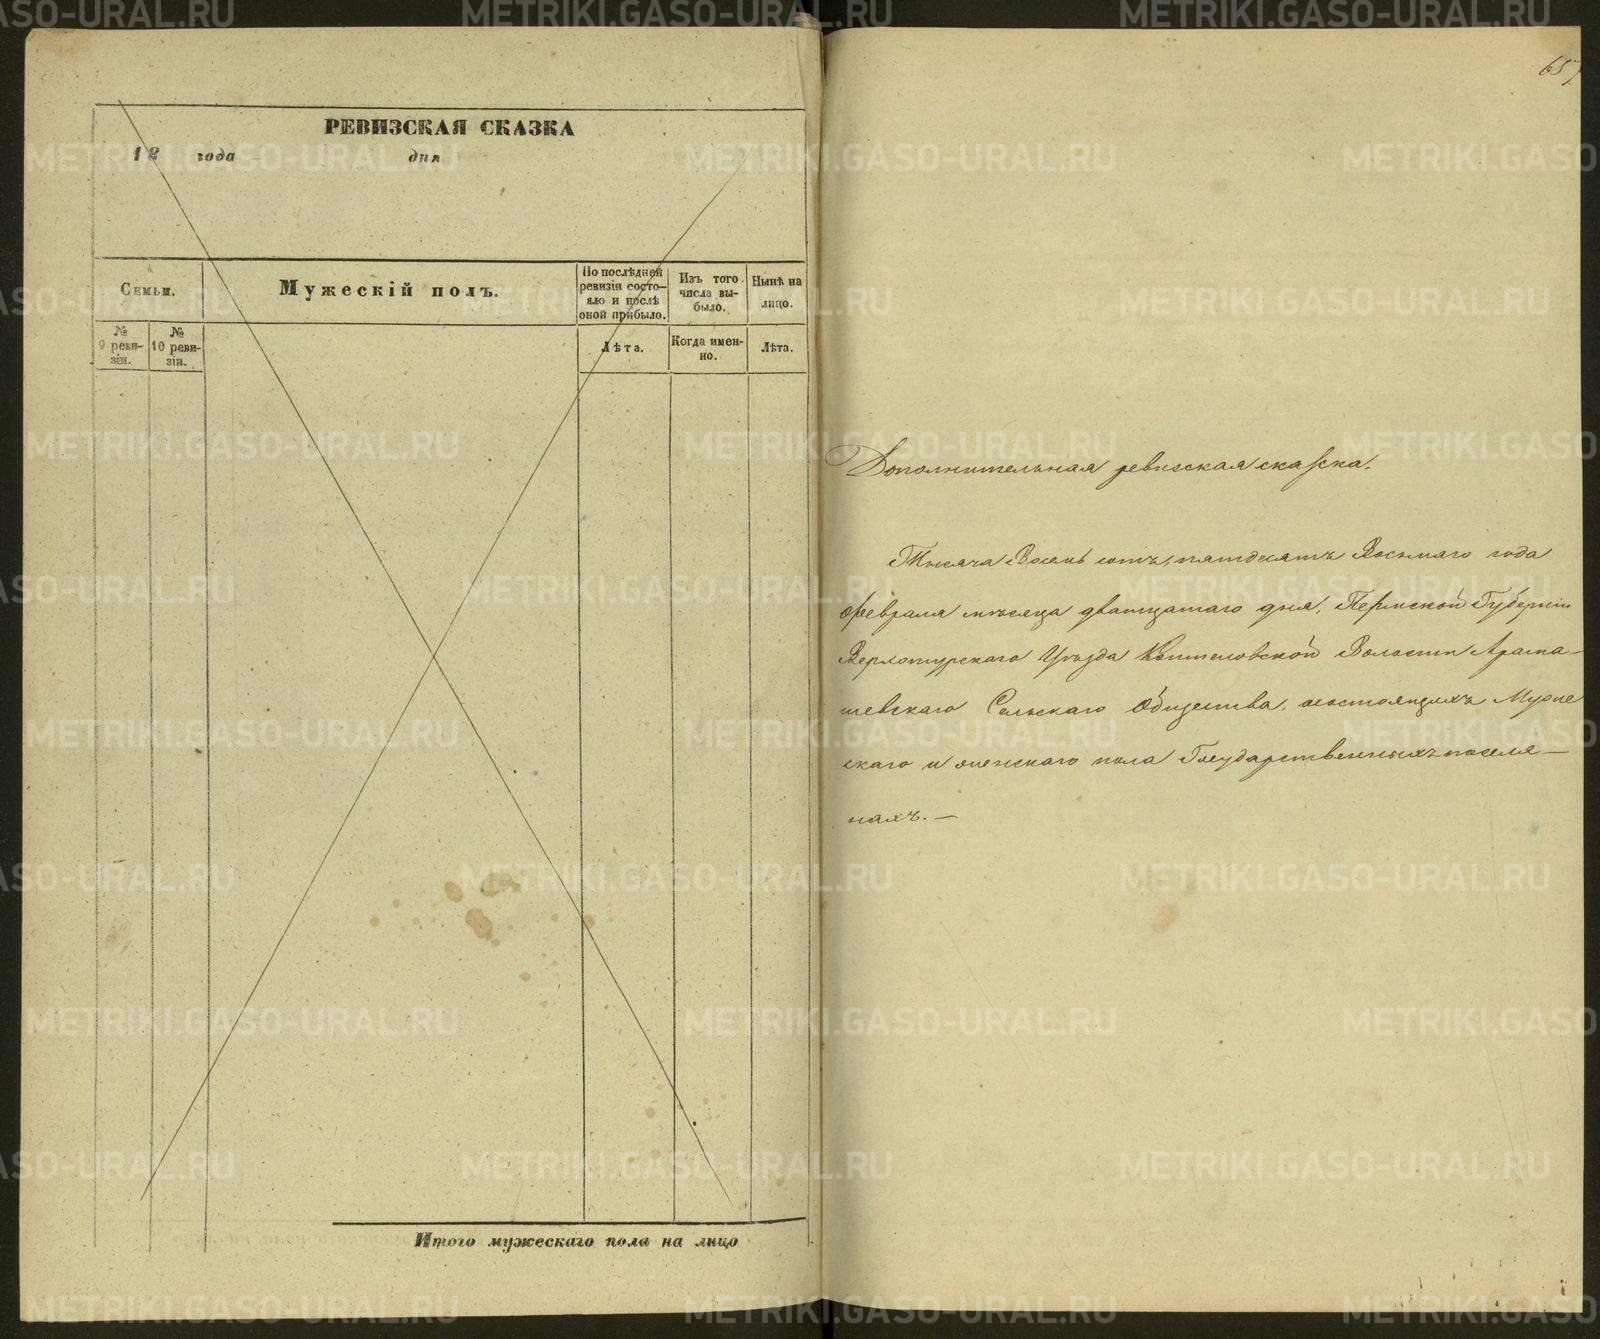 РЕВИЗСКАЯ СКАЗКА
18 года дня
Семьи.
Мужескій полъ.
По послѣдней ревизіи состо-
яло и послѣ
оной прибыло.
Изъ того
числа вы-
было.
Нынѣ на
лицо.
№
9 реви-
зіи.
№
10 реви-
зіи.
Лѣта.
Когда имен-
но.
Лѣта.
Итого мужескаго пола на лицо
657
Дополнительная ревизская сказка.
Тысяча Восемь сотъ, пятдесятъ Восьмаго года
февраля мѣсяца дватцатаго дня, Пермской Губерніи
Верхотурскаго Уѣзда Коптеловской Волости Арама-
шевскаго Сельскаго Общества, о состоящихъ Муже
скаго и женскаго пола Государственныхъ поселя-
нахъ. —
METRIKI.GASO-URAL.RU